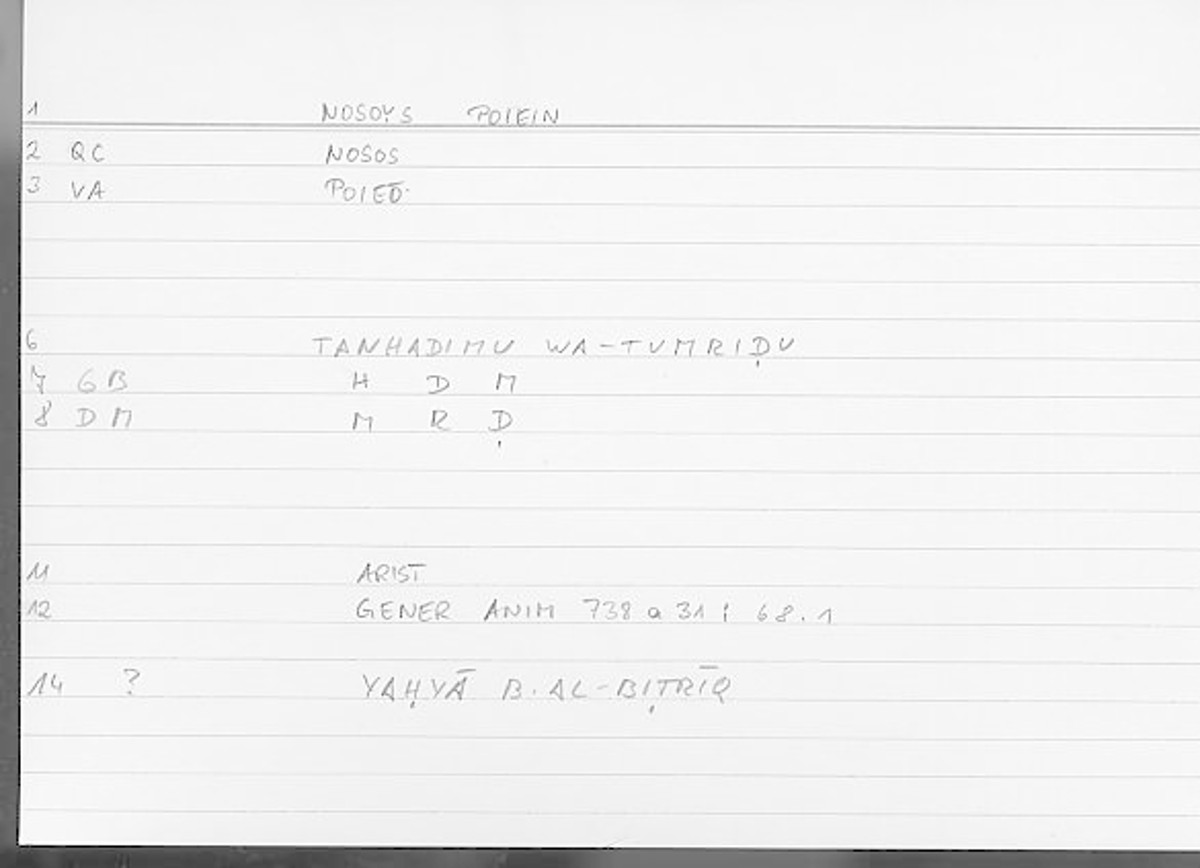 1 NOSOYS POIEIN
2 QC NOSOS
3 VA POIEŌ
6 TANHADIMU WA-TUMRIḌU
7 GB H D M
8 DM M R Ḍ
11 ARIST
12 GENER ANIM 738 a 31 ; 68.1
14 ? YAḤYĀ B. AL-BIṬRĪQ